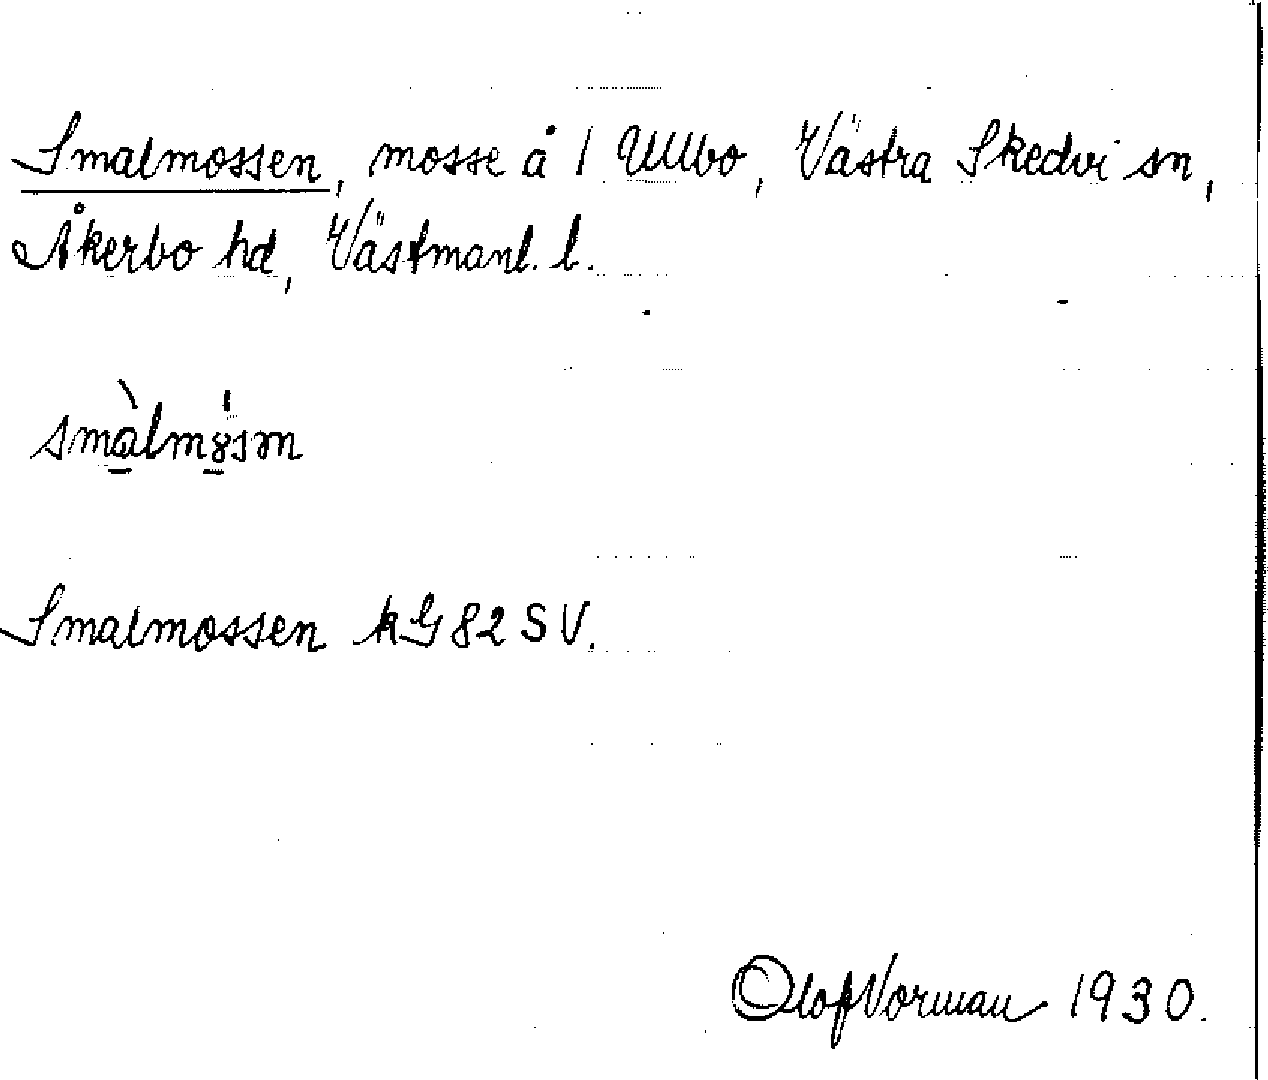 Smalmossen, mosse å 1 Ullbo, Västra Skedvi sn,
Åkerbo hd, Västmanl. l.
smàlmȣsm
Smalmossen kG 82 S V.
Olof Vorman 1930.